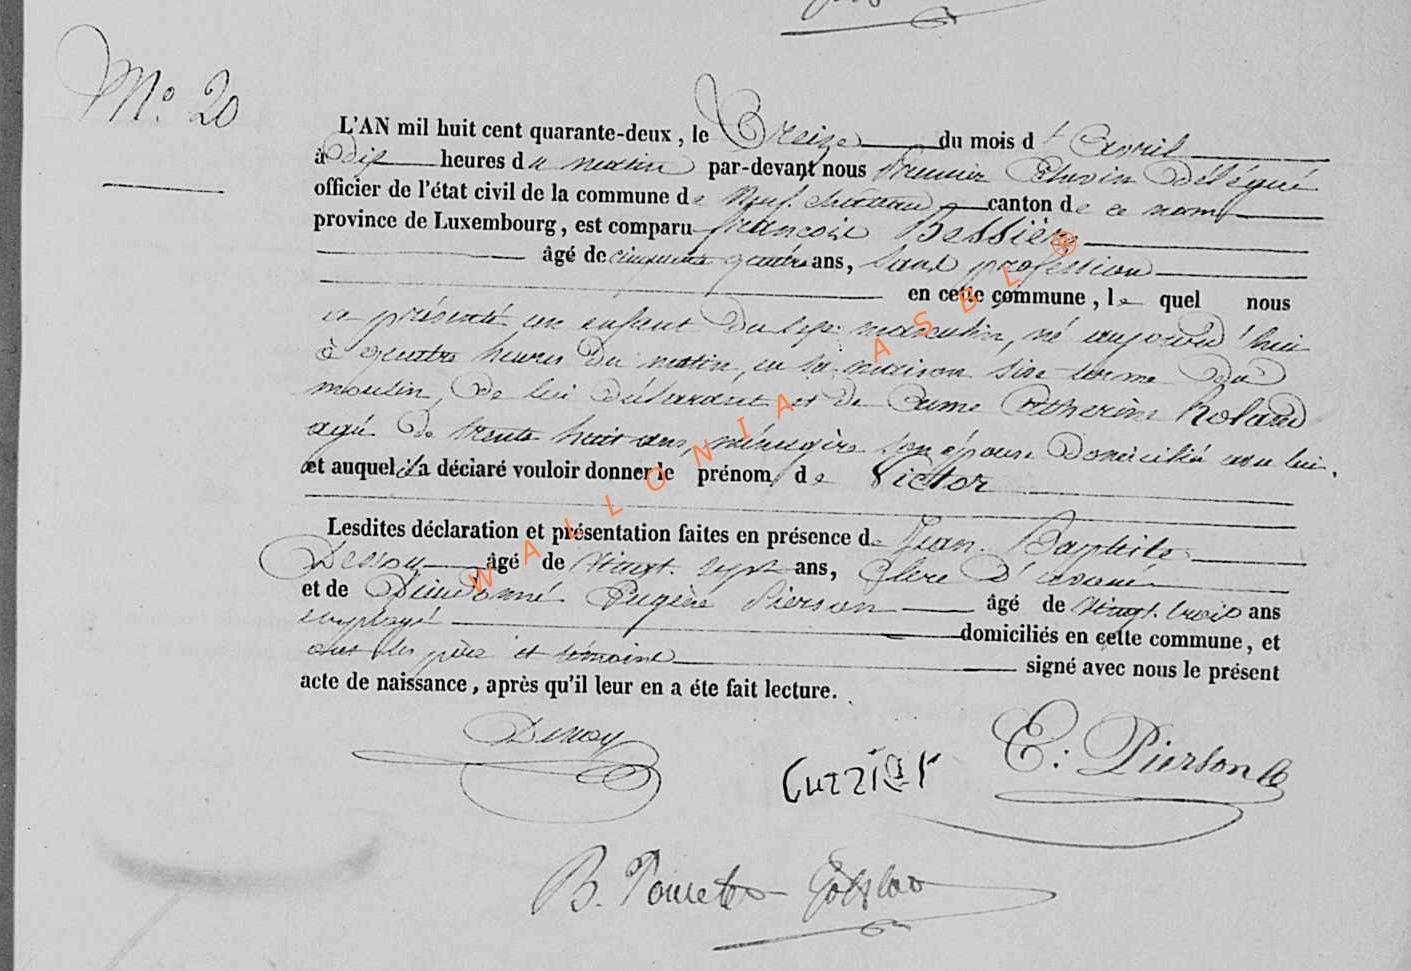 N.o 20
L'AN mil huit cent quarante-deux, le Treize du mois d'avril
à Dix heures du matin par-devant nous Premier Echevin Délégué
officier de l'état civil de la commune de Neufchâteau canton de ce nom
province de Luxembourg, est comparu françois Bessière
âgé de cinquante quatre ans, sans profession
en cette commune, le quel nous
a présenté un enfant du sexe masculin, né aujourd'hui
à quatre heures du matin, en sa maison sise du
moulin, de lui déclarant et de Dame Catherine Roland
agé de trente huit ans, ménagère son épouse domicilié avec lui,
et auquel il a déclaré vouloir donner le prénom de Victor
Lesdites déclaration et présentation faites en présence de Jean Baptiste
Denoy âgé de Vingt sept ans, Clerc d'avoué
et de Dieudonné Eugène Pierson âgé de Vingt trois ans
employé domiciliés en cette commune, et
ont les père et témoins signé avec nous le présent
acte de naissance, après qu'il leur en a éte fait lecture.
Denoy
E: Pierson
B.
WALLONIA ASBL ®